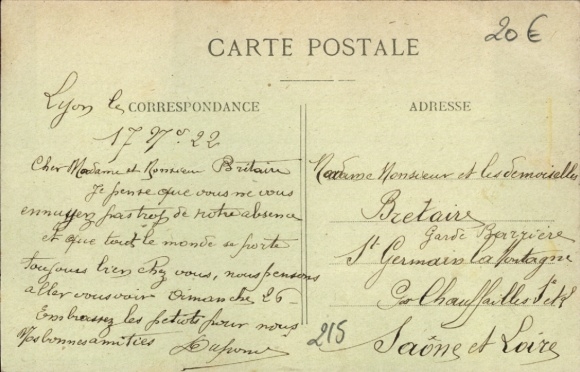 20€
CARTE POSTALE
Lyon le
CORRESPONDANCE
17 Nº 22
Cher Madame et Monsieur Britaire
Je pense que vous ne vous
ennuyez pas trop de notre absence
et que tout le monde se porte
toujours bien chez vous, nous pensons
aller vous voir Dimanche 26
Embrassez les petiots pour nous
Nos bonnes amitiés
ADRESSE
Madame Monsieur et les demoiselles
Bretaire
Garde Barrière
St Germain la Montagne
Par Chauffailles
Saône et Loire
215